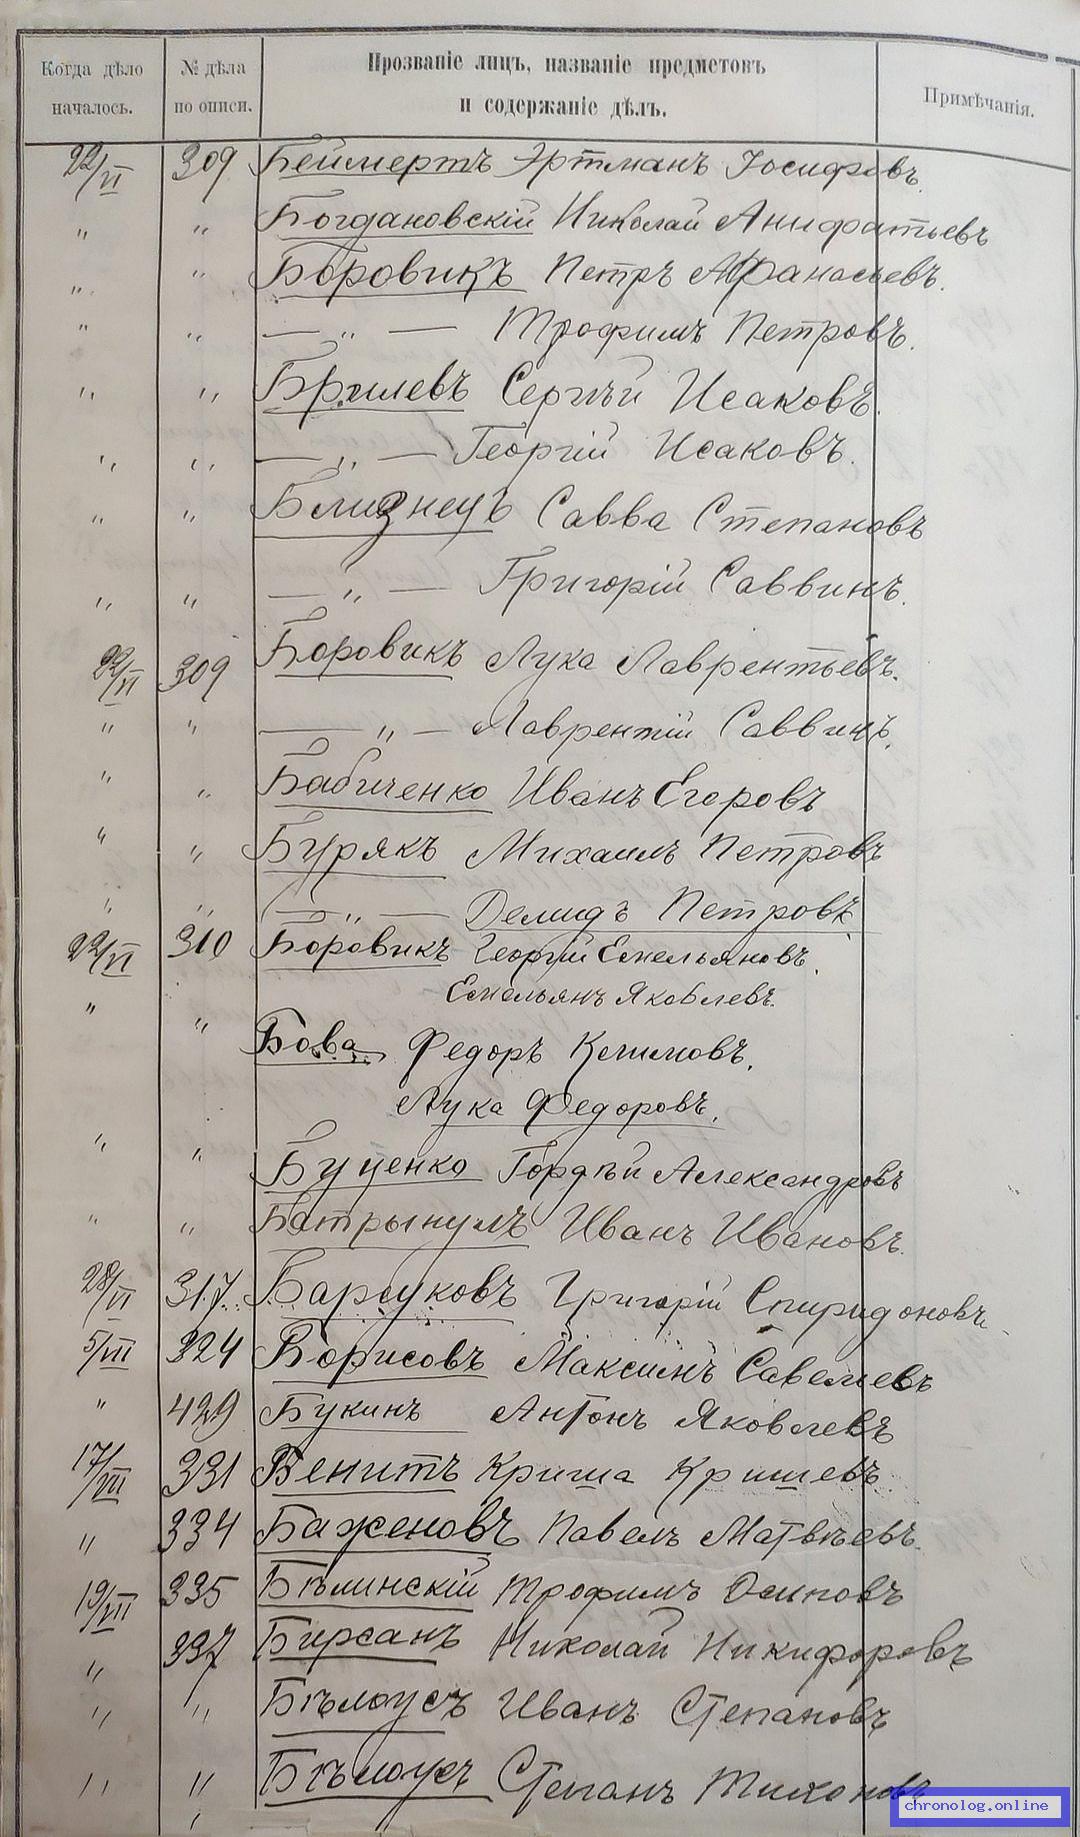 Когда дѣло началось.
№ дѣла по описи.
Прозваніе лицъ, названіе предметовъ и содержаніе дѣлъ.
Примѣчанія.
22/II 309 Беймертъ Эртманъ Іосифовъ.
" " Богдановскій Николай Анифатьевъ
" " Боровикъ Петръ Афанасьевъ.
" " — " — Трофимъ Петровъ.
" " Брилевъ Сергѣй Исаковъ.
" " — " — Георгій Исаковъ.
" " Близнецъ Савва Степановъ
" " — " — Григорій Саввинъ.
22/II 309 Боровикъ Лука Лаврентьевъ.
" " — " — Лаврентій Саввинъ.
" " Бабиченко Иванъ Егоровъ
" " Бурякъ Михаилъ Петровъ
" " — " — Демидъ Петровъ
22/II 310 Боровикъ Георгій Емельяновъ.
Емельянъ Яковлевъ.
" " Бова Федоръ Климовъ.
Лука Федоровъ.
" " Буценко Гордѣй Александровъ
" " Батрынулъ Иванъ Ивановъ.
28/II 317. Барсуковъ Григорій Спиридоновъ
5/III 324 Борисовъ Максимъ Савельевъ
" 429 Букинъ Антонъ Яковлевъ
17/III 331 Венитъ Криша Кришевъ
" 334 Баженовъ Павелъ Матвѣевъ.
19/III 335 Бѣлинскій Трофимъ Осиповъ
" 337 Бирсанъ Николай Никифоровъ
" " Бѣлоусъ Иванъ Степановъ
" " Бѣлоусъ Степанъ Тихоновъ
chronolog.online